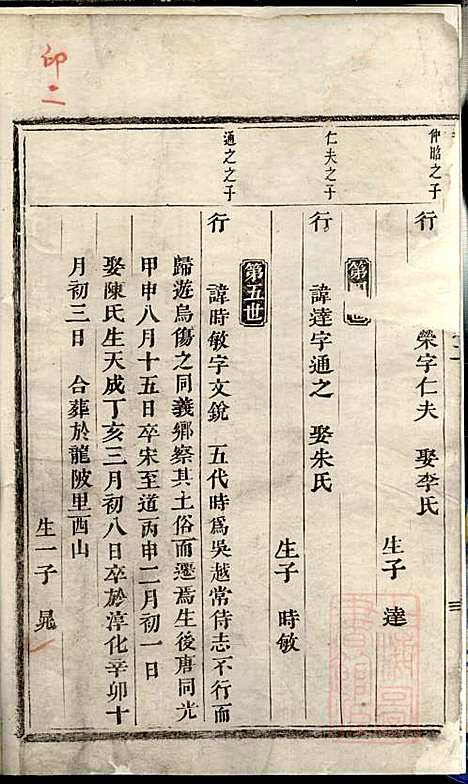 仲昭之子
行
榮字仁夫 娶李氏
生子 達
仁夫之子
第
行 諱達字通之 娶朱氏
生子 時敏
通之之子
第五世
行 諱時敏字文銳 五代時爲吳越常侍志不行而
歸遊烏傷之同義鄉察其土俗而遷焉生後唐同光
甲申八月十五日卒宋至道丙申二月初一日
娶陳氏生天成丁亥三月初八日卒於淳化辛卯十
月初三日 合葬於龍陂里西山
生一子 晁
印二